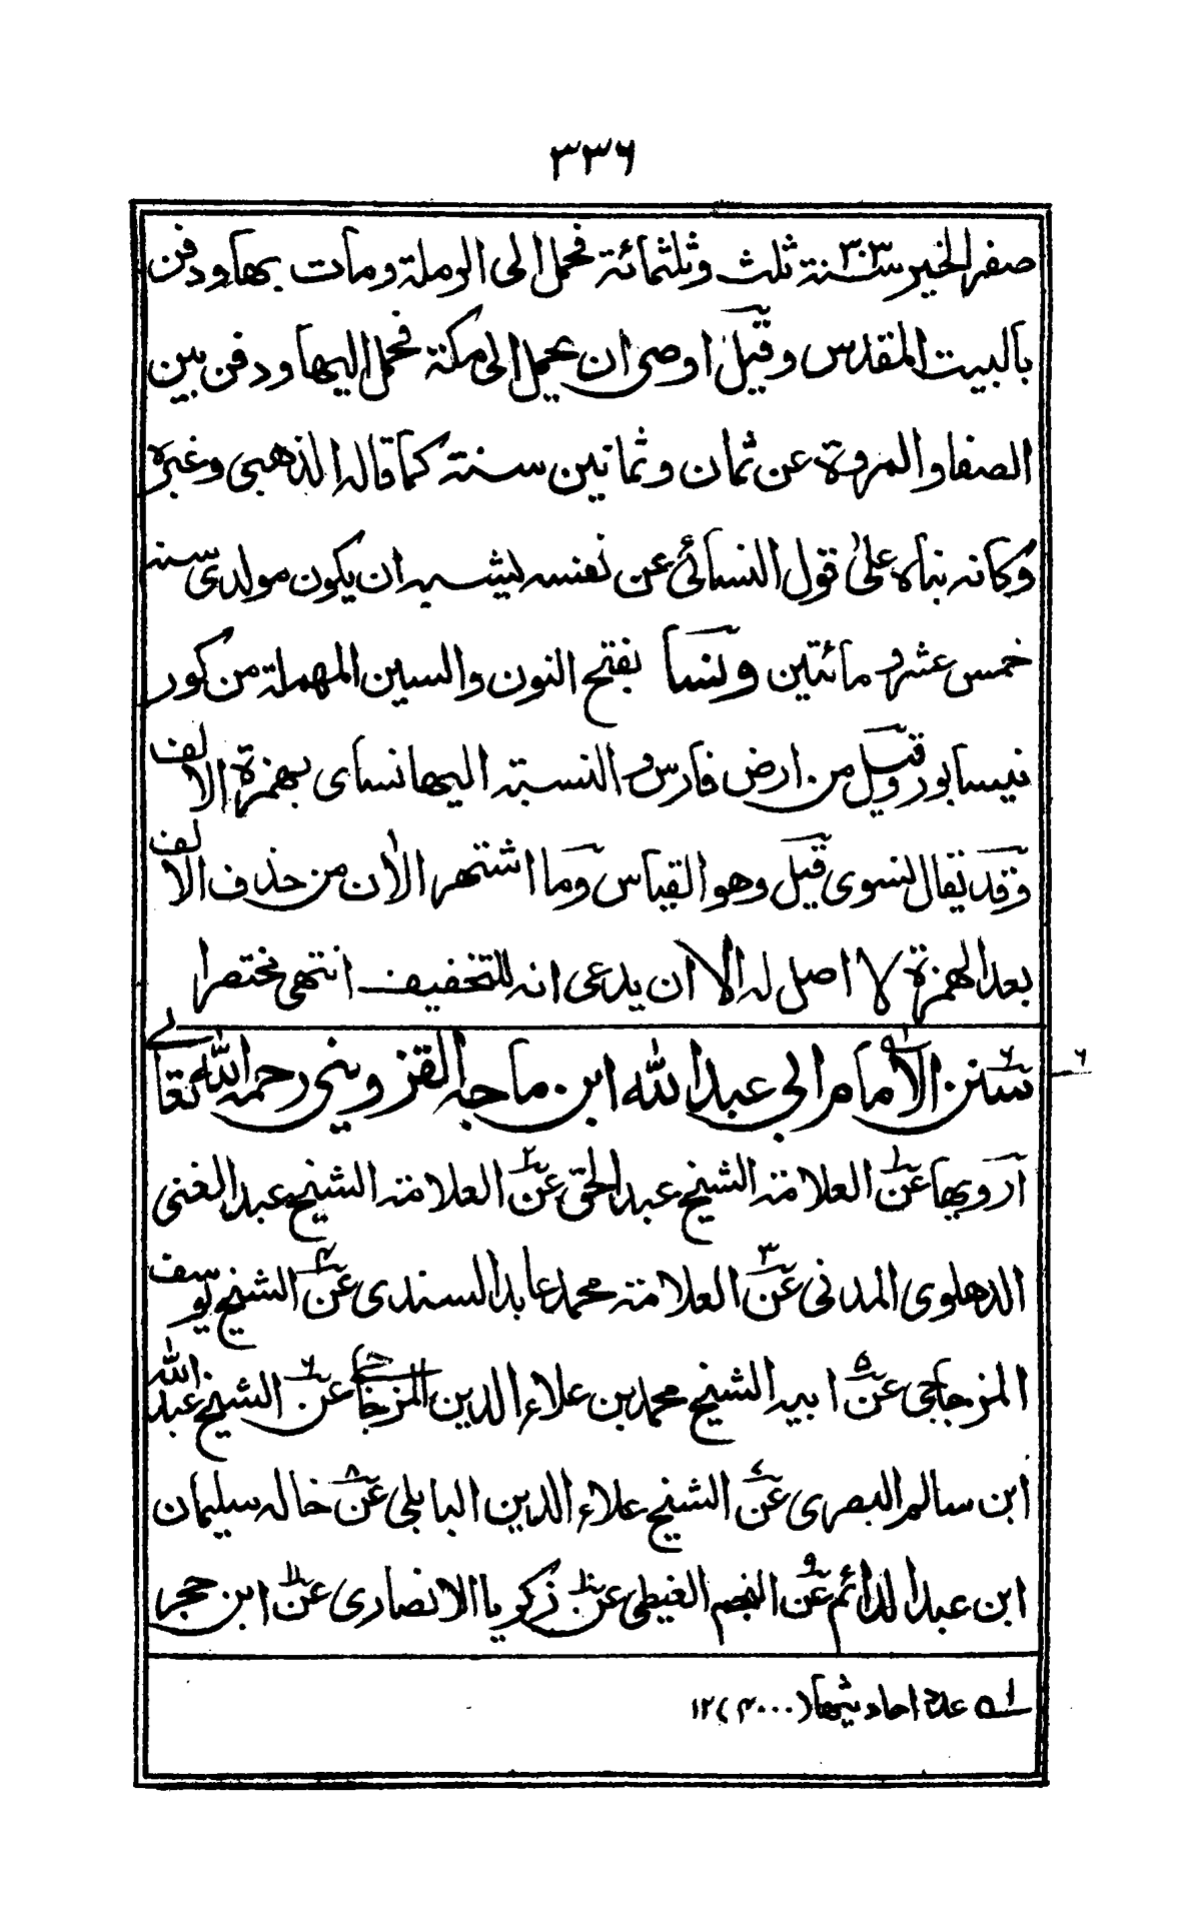 ٣٣٦
صفر الخير سنة ٣٠٣ ثلث وثلثمائة فحمل الى الرملة ومات بها ودفن
بالبيت المقدس وقيل اوصى ان يحمل الى مكة فحمل اليها ودفن بين
الصفا والمروة عن ثمان وثمانين سنة كما قاله الذهبي وغيره
وكانه بناه على قول النسائي عن نفسه يشبه ان يكون مولدى سنه
خمس عشر ومائتين ونسا بفتح النون والسين المهملة من كور
نيسابور وقيل من ارض فارس والنسبة اليها نساى بهمزة الالف
وقد يقال نسوى قيل وهو القياس وما اشتهر الان من حذف الالف
بعد الهمزة لا اصل له الا ان يدعى انه للتخفيف انتهى مختصرا
٦ سنن الامام ابى عبد الله ابن ماجه القزويني رحمه الله تعالے
ارويها عن١ العلامة الشيخ عبد الحق عن٢ العلامة الشيخ عبد الغنى
الدهلوى المدنى عن٣ العلامة محمد عابد السندى عن٤ الشيخ يوسف
المزجاجى عن٥ ابيه الشيخ محمد بن علاء الدين المزجاجى عن٦ الشيخ عبد الله
ابن سالم البصرى عن٧ الشيخ علاء الدين البابلى عن٨ خاله سليمان
ابن عبد الدائم عن٩ النجم الغيطى عن١٠ زكريا الانصارى عن١١ ابن حجر
١ه عدة احاديثها (٤٠٠٠) ١٢